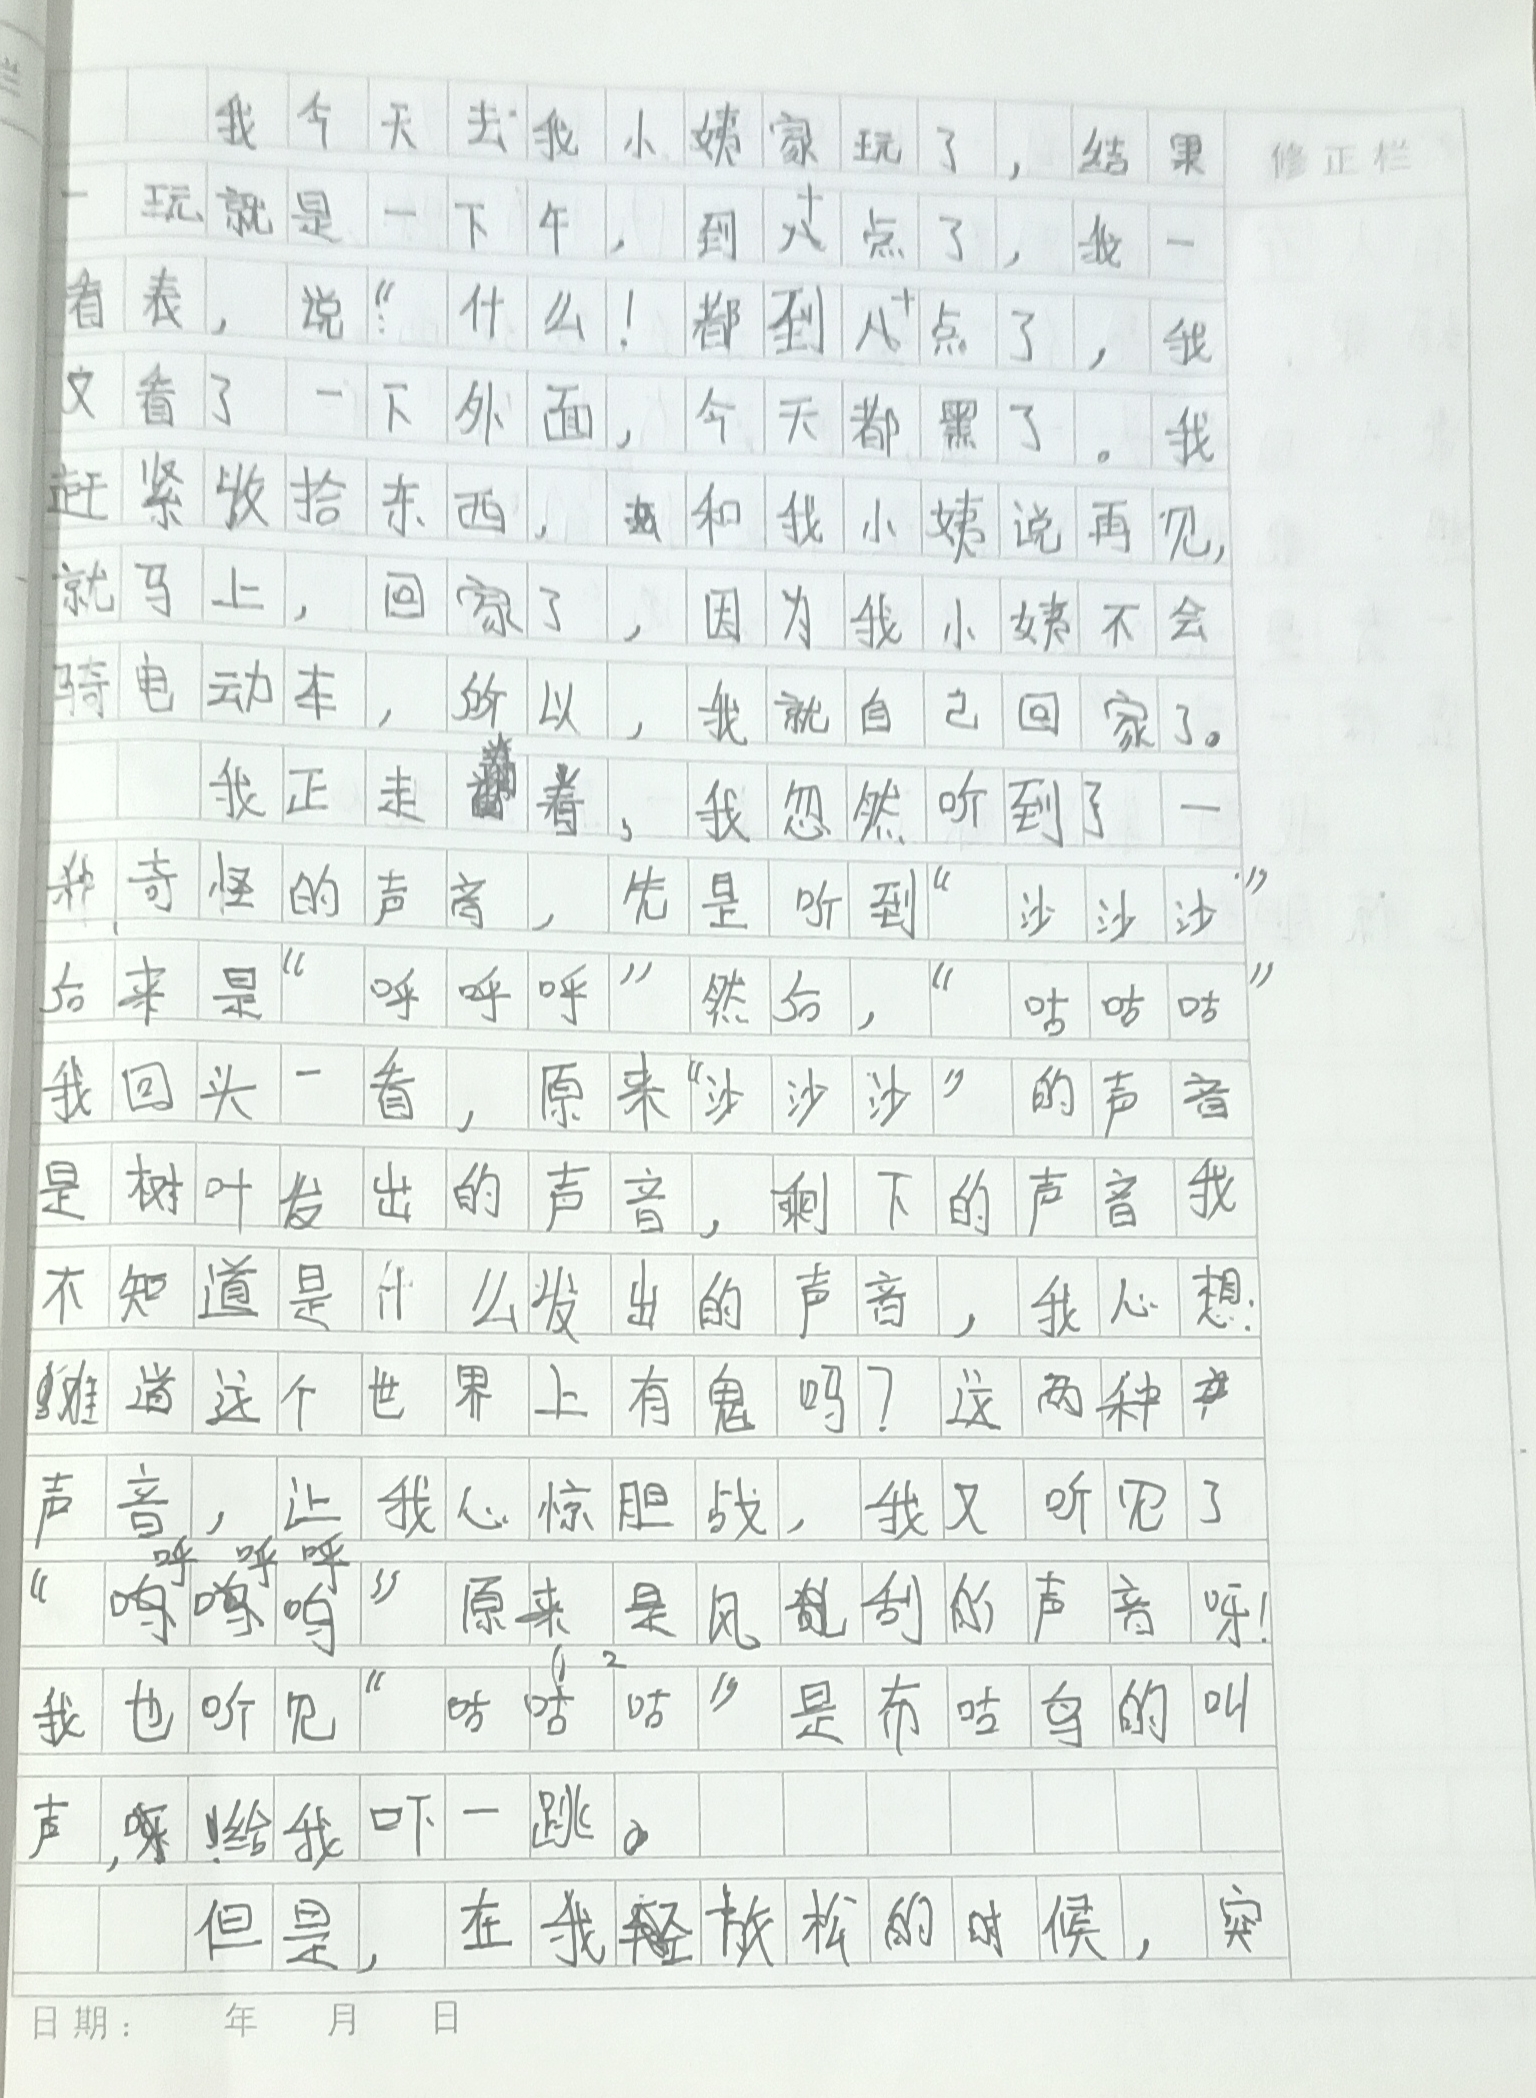 我今天去我小姨家玩了，结果
修正栏
一玩就是一下午，到八十点了，我一
看表，说：“什么！都到八十点了，我
又看了一下外面，今天都黑了。我
赶紧收拾东西，和我小姨说再见，
就马上，回家了，因为我小姨不会
骑电动车，所以，我就自己回家了。
我正走着，我忽然听到了一
种奇怪的声音，先是听到“沙沙沙”
后来是“呼呼呼”然后，“咕咕咕”
我回头一看，原来“沙沙沙”的声音
是树叶发出的声音，剩下的声音我
不知道是什么发出的声音，我心想：
难道这个世界上有鬼吗？这两种
声音，让我心惊胆战，我又听见了
“呼呼呼”原来是风乱刮的声音呀！
我也听见“咕咕咕”是布咕鸟的叫
声，呀！给我吓一跳。
但是，在我放松的时候，突
日期： 年 月 日